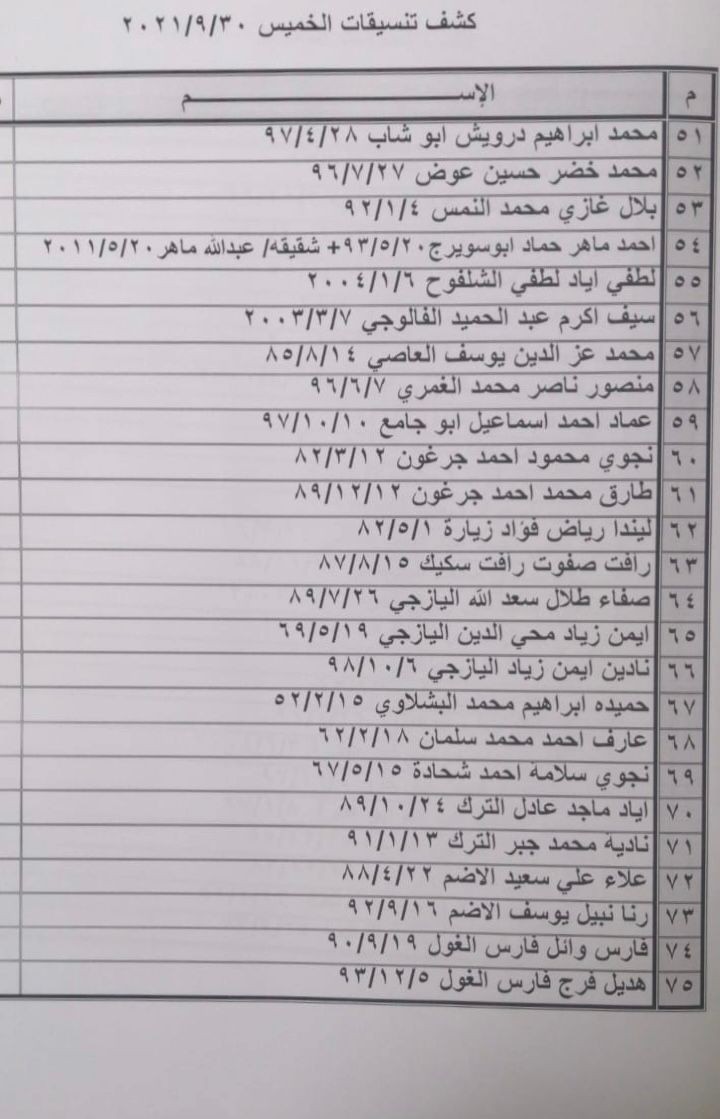 كشف تنسيقات الخميس ٢٠٢١/٩/٣٠
م الإســـــــــم
٥١ محمد ابراهيم درويش ابو شاب ٩٧/٤/٢٨
٥٢ محمد خضر حسين عوض ٩٦/٧/٢٧
٥٣ بلال غازي محمد النمس ٩٢/١/٤
٥٤ احمد ماهر حماد ابوسويرج٩٣/٥/٢٠+ شقيقه/ عبدالله ماهر٢٠١١/٥/٢٠
٥٥ لطفي اياد لطفي الشلفوح ٢٠٠٤/١/٦
٥٦ سيف اكرم عبد الحميد الفالوجي ٢٠٠٣/٣/٧
٥٧ محمد عز الدين يوسف العاصي ٨٥/٨/١٤
٥٨ منصور ناصر محمد الغمري ٩٦/٦/٧
٥٩ عماد احمد اسماعيل ابو جامع ٩٧/١٠/١٠
٦٠ نجوي محمود احمد جرغون ٨٢/٣/١٢
٦١ طارق محمد احمد جرغون ٨٩/١٢/١٢
٦٢ ليندا رياض فؤاد زيارة ٨٢/٥/١
٦٣ رافت صفوت رافت سكيك ٨٧/٨/١٥
٦٤ صفاء طلال سعد الله اليازجي ٨٩/٧/٢٦
٦٥ ايمن زياد محي الدين اليازجي ٦٩/٥/١٩
٦٦ نادين ايمن زياد اليازجي ٩٨/١٠/٦
٦٧ حميده ابراهيم محمد البشلاوي ٥٢/٢/١٥
٦٨ عارف احمد محمد سلمان ٦٢/٢/١٨
٦٩ نجوي سلامة احمد شحادة ٦٧/٥/١٥
٧٠ اياد ماجد عادل الترك ٨٩/١٠/٢٤
٧١ نادية محمد جبر الترك ٩١/١/١٣
٧٢ علاء علي سعيد الاضم ٨٨/٤/٢٢
٧٣ رنا نبيل يوسف الاضم ٩٢/٩/١٦
٧٤ فارس وائل فارس الغول ٩٠/٩/١٩
٧٥ هديل فرج فارس الغول ٩٣/١٢/٥